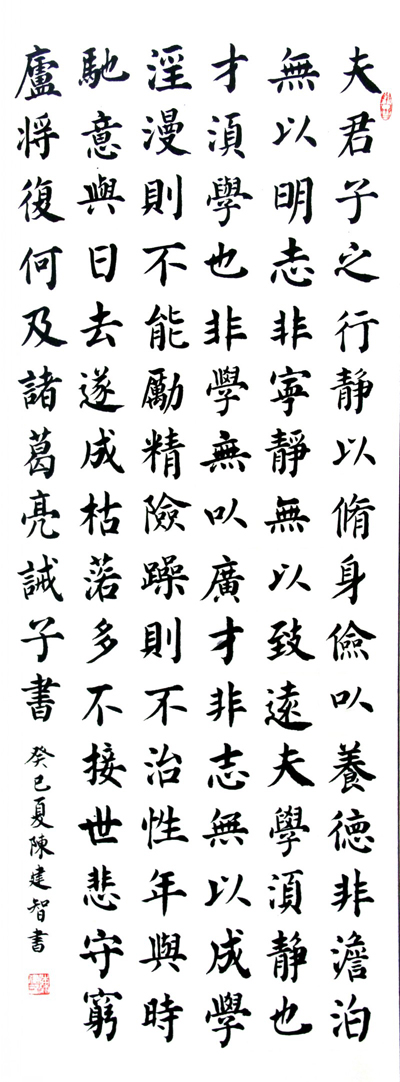 夫君子之行靜以脩身儉以養德非澹泊
無以明志非寧靜無以致遠夫學湏靜也
才湏學也非學無以廣才非志無以成學
淫漫則不能勵精險躁則不治性年與時
馳意與日去遂成枯落多不接世悲守窮
廬将復何及諸葛亮誡子書
癸巳夏陳建智書